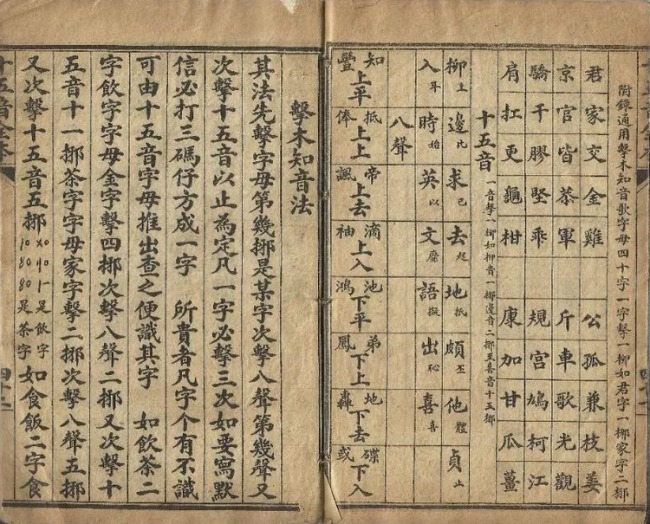 附錄通用擊木知音歌字母四十字一字擊一挷如君字一挷家字二挷
君家交金雞 公孤兼枝姜
京官皆恭軍 斤車歌光觀
驕千膠堅乖 規宮鳩柯江
肩扛更龜柑 康加甘瓜薑
十五音 一音擊一挷如柳音一挷邊音二挷至喜音十五挷
柳上 邊比 求已 去起 地抵 頗丕 他體 貞止
入耳 時始 英以 文靡 語擬 出恥 喜喜
八聲
知 抵 帝 滴 池 弟 地 碟
上平 上上 上去 上入 下平 下上 下去 下入
豐 俸 諷 袖 鴻 鳳 轟 或
擊木知音法
其法先擊字母第幾挷是某字次擊八聲第幾聲又
次擊十五音以止為定凡一字必擊三次如要寫默
信必打三碼仔方成一字 所貴者凡字个有不識
可由十五音字母推出查之便識其字 如飲茶二
字飲字字母金字擊四挷次擊八聲二挷又次擊十
五音十一挷茶字字母家字擊二挷次擊八聲五挷
又次擊十五音五挷 是飲字 是茶字 如食飯二字食
十五音全本